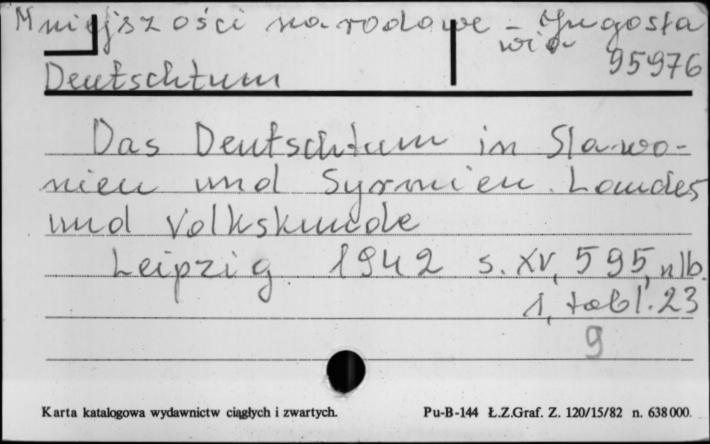 Mniejszości narodowe - Jugosła
wia
95976
Deutschtum
Das Deutschtum in Slawo-
nien und Syrmien. Landes
und Volkskunde
Leipzig 1942 s. XV, 595, nlb.
1, tabl. 23
9
Karta katalogowa wydawnictw ciągłych i zwartych. Pu-B-144 Ł.Z.Graf. Z. 120/15/82 n. 638000.